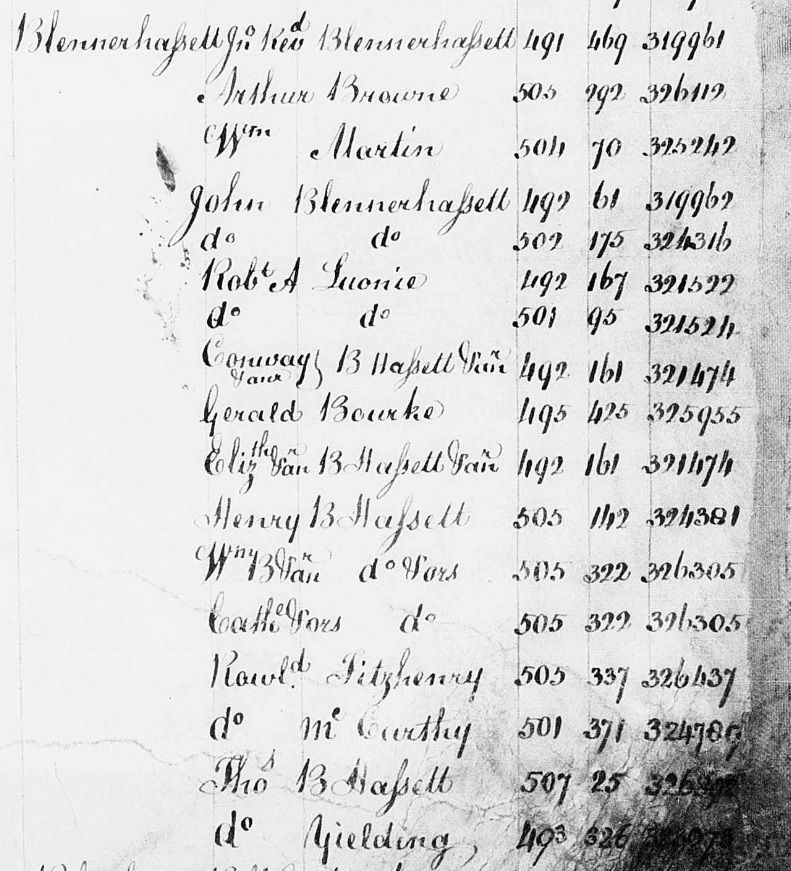 Blennerhaſsett Jno Revd Blennerhaſsett 491 469 319961
Arthur Browne 505 292 326112
Wm Martin 504 70 325242
John Blennerhaſsett 492 61 319962
do do 502 175 324316
Robt A 492 167 321522
do do 501 95 321524
Conway B Haſsett 492 161 321474
Gerald Bourke 495 425 325955
Elizth B Haſsett 492 161 321474
Henry B Haſsett 505 142 324381
Wm B do 505 322 326305
Cathe do 505 322 326305
Rowld Fitzhenry 505 337 326437
do Mc Carthy 501 371
Thos B Haſsett 507 25
do Yielding 493 326